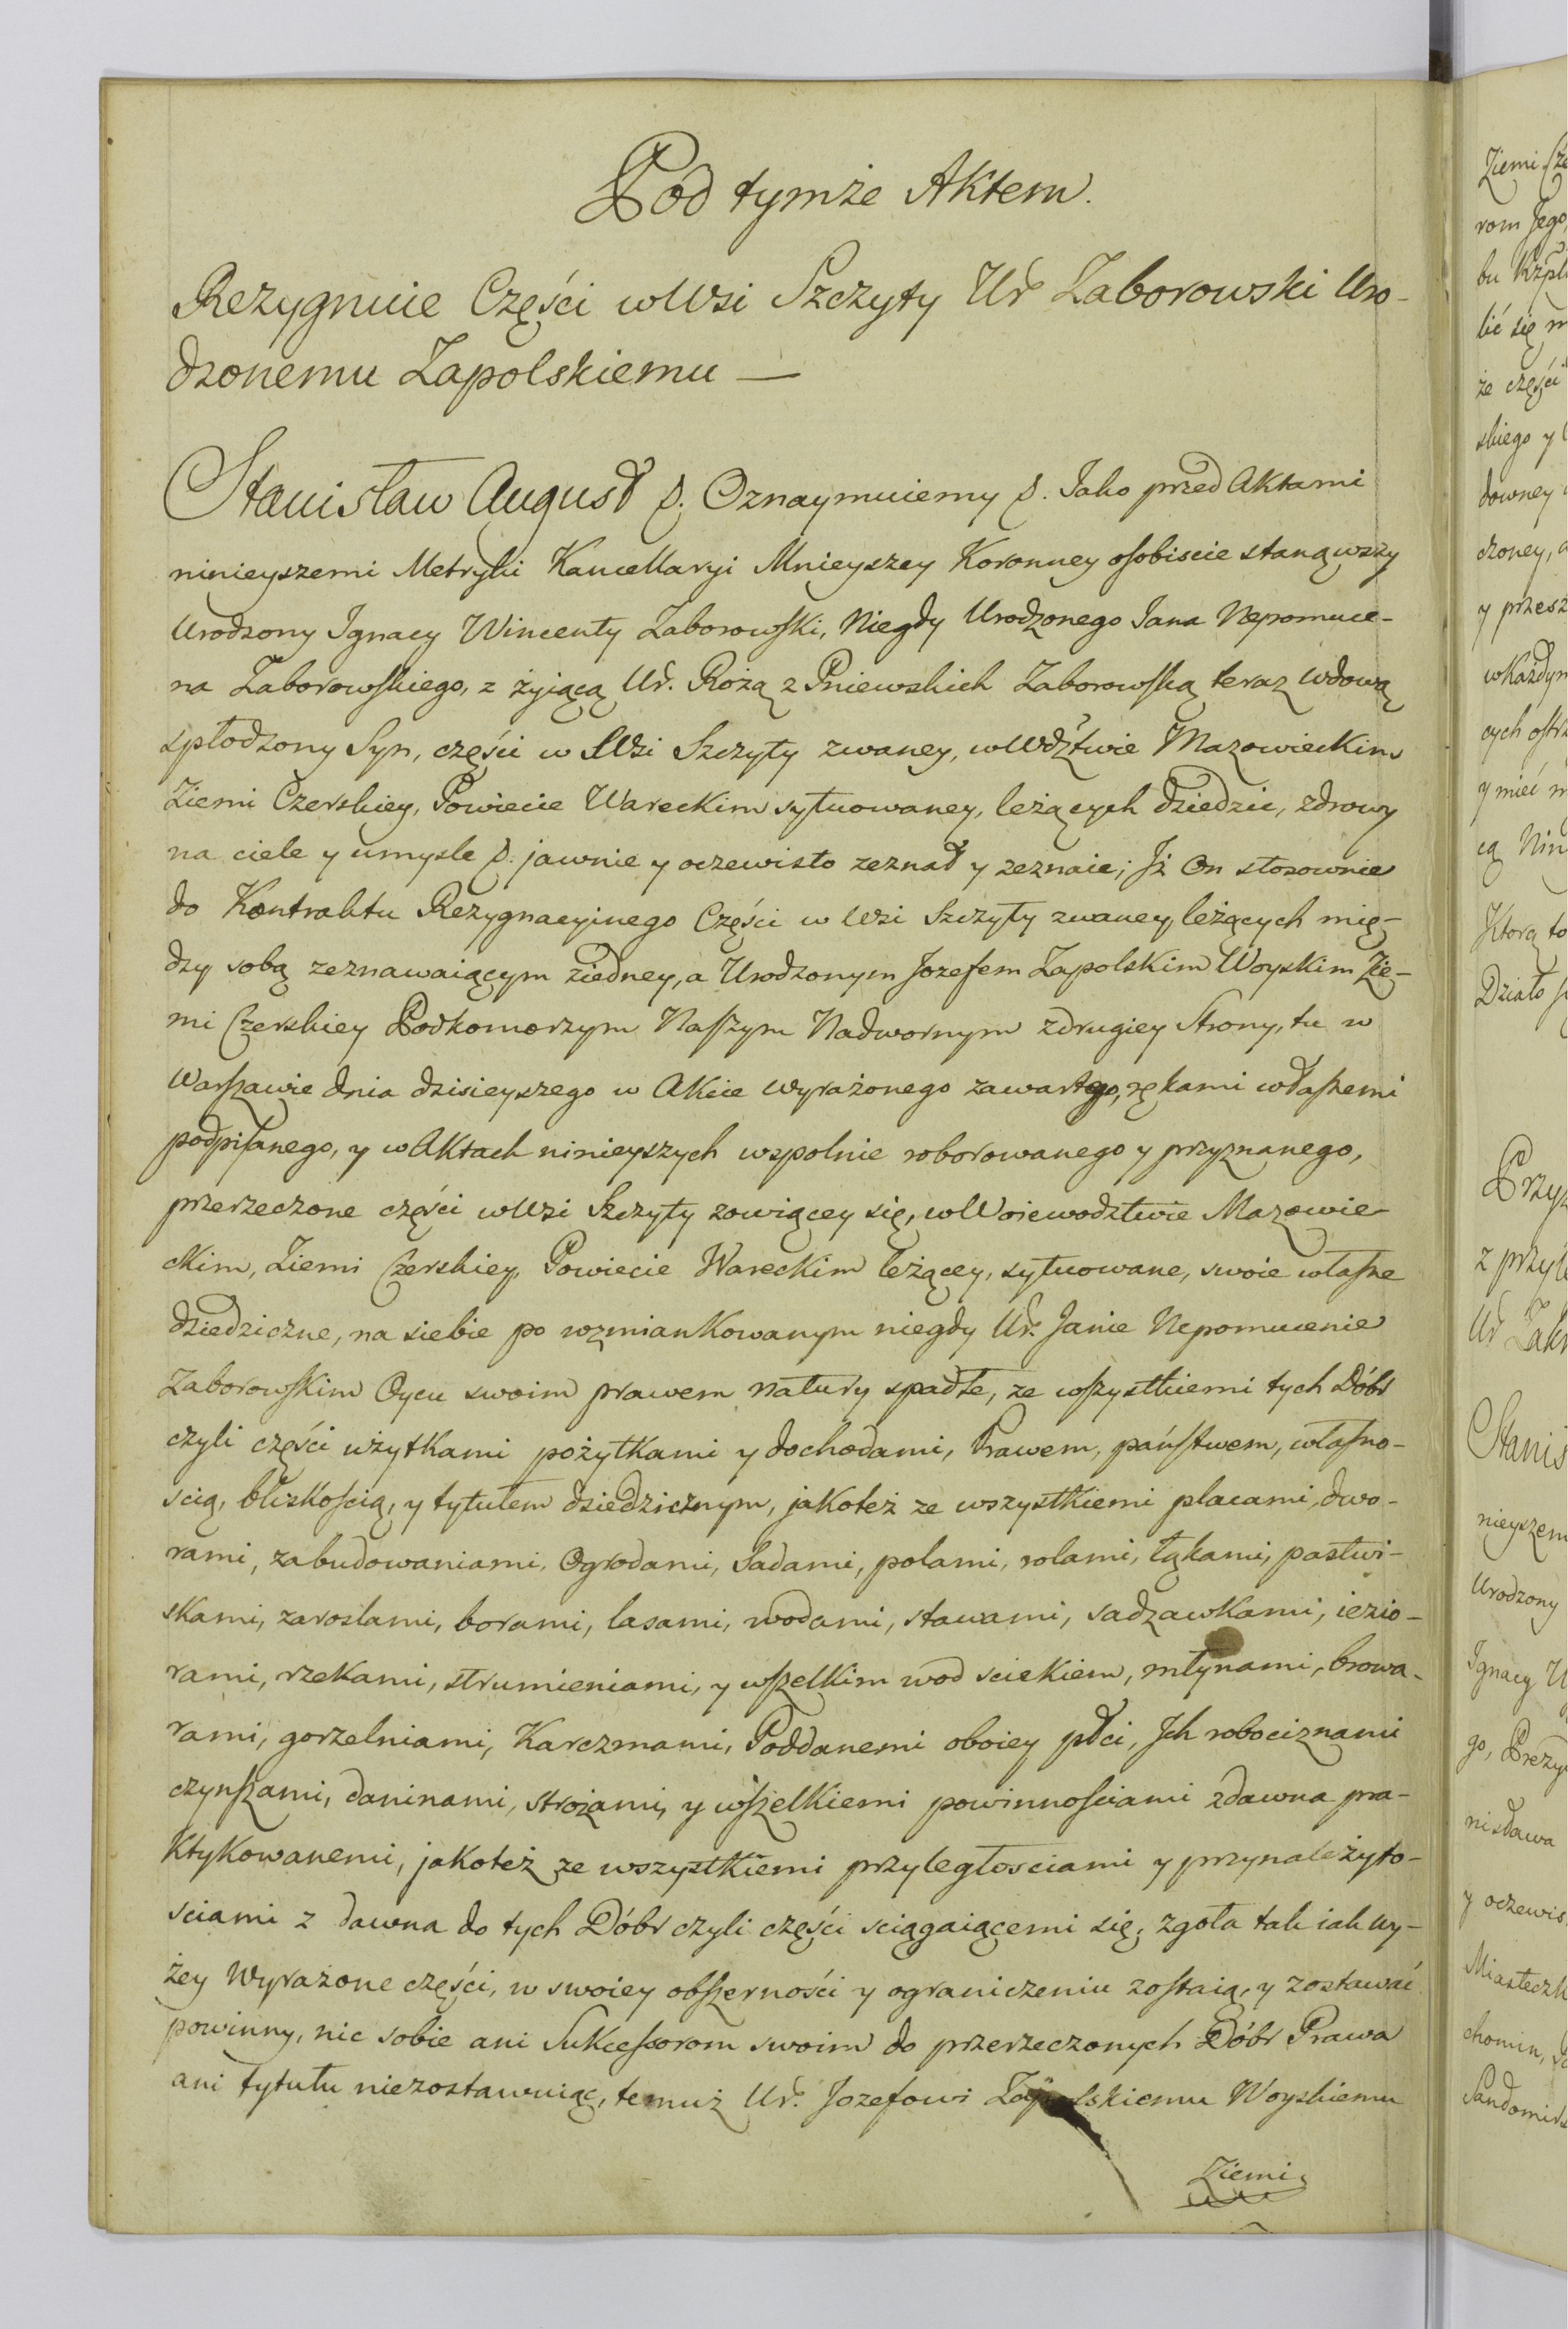 Pod tymże Aktem.
Rezygnuie Części w Wsi Szczyty Ur Zaborowski Uro-
dzonemu Zapolskiemu —
Stanisław August &. Oznaymuiemy &. Jako przed Aktami
ninieyszemi Metryki Kancellaryi Mnieyszey Koronney osobiscie stanąwszy
Urodzony Ignacy Wincenty Zaborowski, Niegdy Urodzonego Jana Nepomuce-
na Zaborowskiego, z żyiącą Ur. Rożą z Pniewskich Zaborowską teraz wdową
spłodzony Syn, części w Wsi Szczyty zwaney, w Wdztwie Mazowieckim
Ziemi Czerskiey, Powiecie Wareckim sytuowaney, leżących Dziedzic, zdrowy
na ciele y umysle &. jawnie y oczewisto zeznał y zeznaie; Jż On stosownie
do Kontraktu Rezygnacyinego Części w Wsi Szczyty zwaney leżących mię-
dzy sobą zeznawaiącym ziedney, a Urodzonym Jozefem Zapolskim Woyskim Zie-
mi Czerskiey Podkomorzym Naszym Nadwornym zdrugiey Strony, tu w
Warszawie dnia dzisieyszego w Akcie wyrażonego zawartego, rękami własnemi
podpisanego, y w Aktach ninieyszych wspolnie roborowanego y przyznanego,
przerzeczone części w Wsi Szczyty zowiącey się, w Woiewodztwie Mazowie-
ckim, Ziemi Czerskiey, Powiecie Wareckim leżącey, sytuowane, swoie własne
dziedziczne, na siebie po wzmiankowanym niegdy Ur. Janie Nepomucenie
Zaborowskim Oycu swoim prawem natury spadłe, ze wszystkiemi tych Dóbr
czyli części użytkami pożytkami y dochodami, Prawem, państwem, własno-
scią, bliskością, y tytułem dziedzicznym, jakoteż ze wszystkiemi placami, dwo-
rami, zabudowaniami, Ogrodami, Sadami, polami, rolami, łąkami, pastwi-
skami, zaroslami, borami, lasami, wodami, stawami, sadzawkami, iezio-
rami, rzekami, strumieniami, y wszelkim wod sciekiem, młynami, browa-
rami, gorzelniami, Karczmami, Poddanemi oboiey płci, Jch robociznami
czynszami, daninami, strożami, y wszelkiemi powinnosciami zdawna pra-
ktykowanemi, jakoteż ze wszystkiemi przyległosciami y przynależyto-
sciami z dawna do tych Dóbr czyli części sciągaiącemi się, zgoła tak iak wy-
żey wyrażone części, w swoiey obszerności y ograniczeniu zostaią, y zostawać
powinny, nic sobie ani Sukcessorom swoim do przerzeczonych Dóbr Prawa
ani tytułu niezostawuiąc, temuż Ur. Jozefowi Zapolskiemu Woyskiemu
Ziemi
Ziemi
rom Jego
bu
lić się
że części
skiego y
downey
czoney,
y przesz
wkażdym
cych
y mieć
cą Nin
Ktorą to
Działo
Przyz
z przyle
Ur
Stanis
nieyszem
Urodzony
Ignacy
go,
nisława
y oczewis
Miasteczk
chomin,
Sandomirs